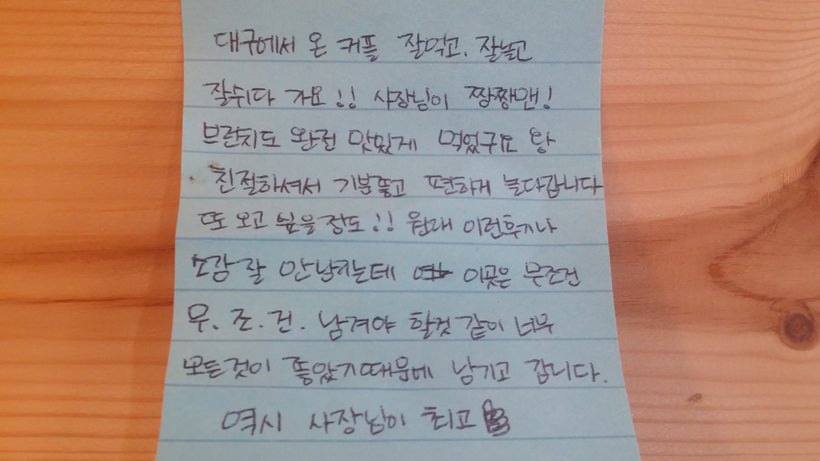 대구에서 온 커플 잘먹고. 잘놀고
잘쉬다 가요!! 사장님이 짱짱맨!
브런치도 완전 맛있게 먹었구요 왕
친절하셔서 기분좋고 편하게 놀다갑니다
또 오고 싶을정도!! 원래 이런후기나
소감 잘 안남기는데 이곳은 무조건
무.조.건. 남겨야 할것 같이 너무
모든것이 좋았기때문에 남기고 갑니다.
역시 사장님이 최고